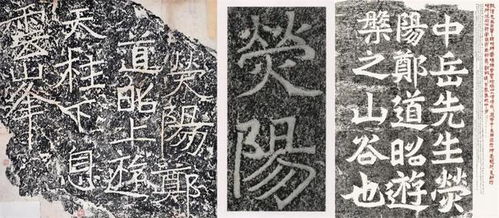 熒陽鄭
道昭上遊
天柱下息
雲峯
熒陽
中岳先生熒
陽鄭道昭遊
槃之山谷也